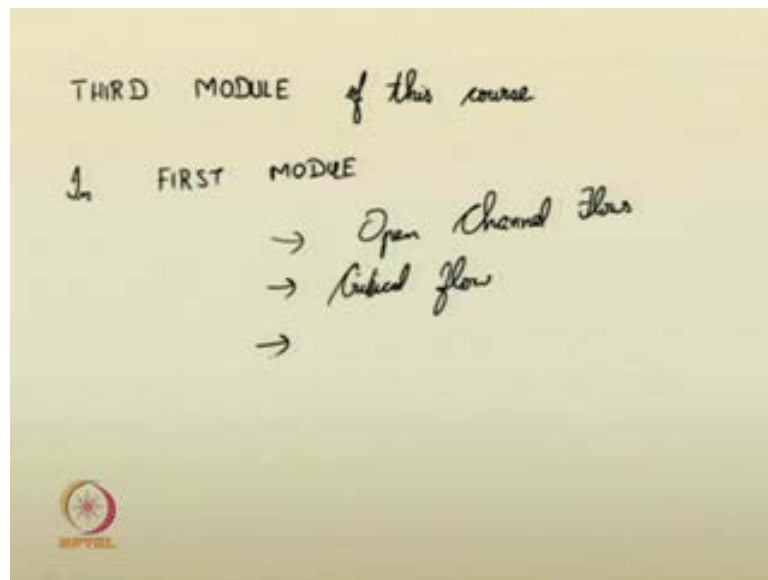 THIRD MODULE of this course
In FIRST MODULE
→ Open Channel Flow
→ Critical flow
→
NPTEL